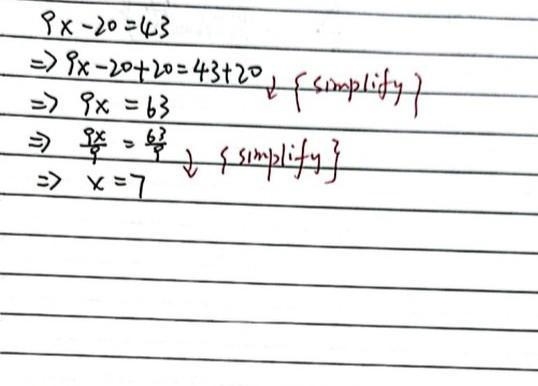 9x-20=43
=> 9x-20+20=43+20 ↓ {simplify}
=> 9x=63
=> 9x/9 = 63/9 ↓ {simplify}
=> x=7